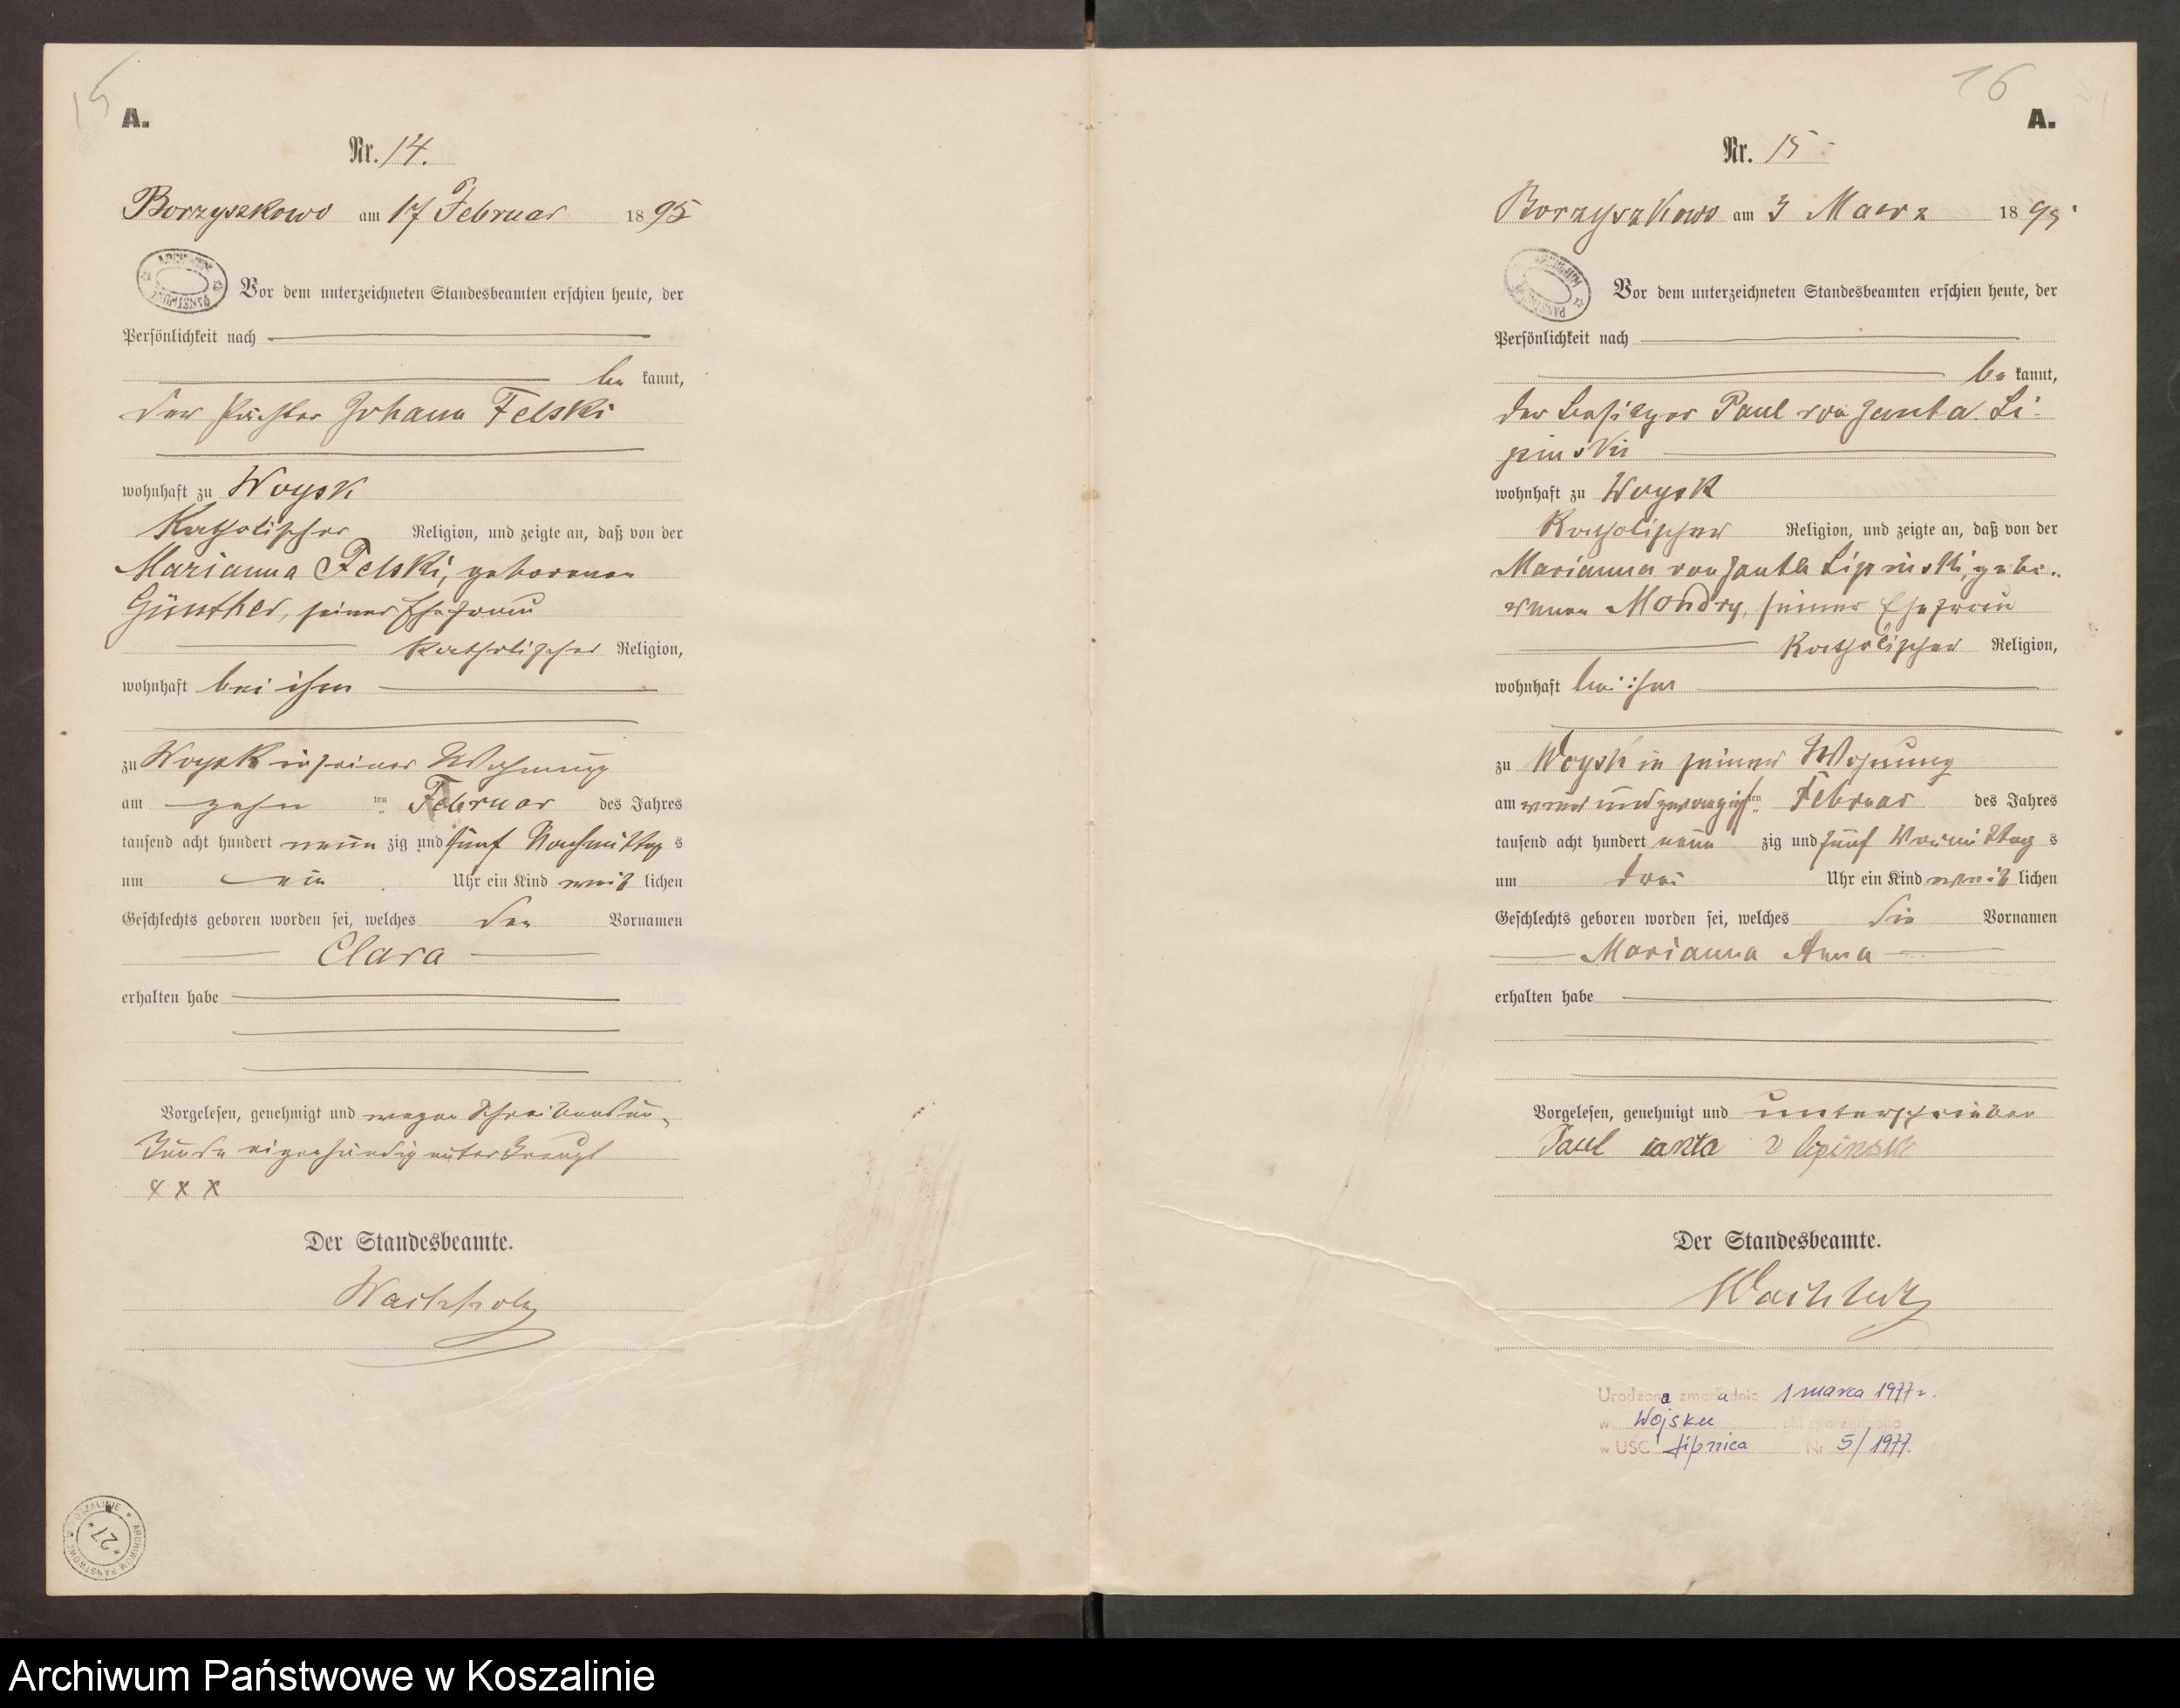 15
A.
Nr. 14.
Borzyszkowo am 17 Februar 1895
Vor dem unterzeichneten Standesbeamten erschien heute, der
Persönlichkeit nach
be kannt,
der Pächter Johann Felski
wohnhaft zu Woysk
Katholischer Religion, und zeigte an, daß von der
Marianna Felski, geborenen
Günther, seiner Ehefrau
katholischer Religion,
wohnhaft bei ihm
zu Woysk in seiner Wohnung
am zehn ten Februar des Jahres
tausend acht hundert neun zig und fünf Nachmittag s
um ein Uhr ein Kind weib lichen
Geschlechts geboren worden sei, welches den Vornamen
Clara
erhalten habe
Vorgelesen, genehmigt und wegen Schreibensun-
kunde eigenhändig unterkreuzt
x x x
Der Standesbeamte.
Wachholz
ARCHIWUM PAŃSTWOWE W KOSZALINIE
* 27 *
16
A.
Nr. 15
Borzyszkowo am 3 Maerz 1895
ARCHIWUM PAŃSTWOWE
Vor dem unterzeichneten Standesbeamten erschien heute, der
Persönlichkeit nach
be kannt,
der Besitzer Paul von Janta Li-
pinski
wohnhaft zu Woysk
Katholischer Religion, und zeigte an, daß von der
Marianna von Janta Lipinski, gebo-
renen Mondry, seiner Ehefrau
Katholischer Religion,
wohnhaft bei ihm
zu Woysk in seiner Wohnung
am und zwanzigsten Februar des Jahres
tausend acht hundert neun zig und fünf Vormittag s
um drei Uhr ein Kind weib lichen
Geschlechts geboren worden sei, welches die Vornamen
Marianna Anna
erhalten habe
Vorgelesen, genehmigt und unterschrieben
Paul Janta v Lipinski
Der Standesbeamte.
Wachholz
Urodzona zmarła dnia 1 marca 1977 r.
w Wojsku
w USC Lipnica Nr 5/1977.
Archiwum Państwowe w Koszalinie